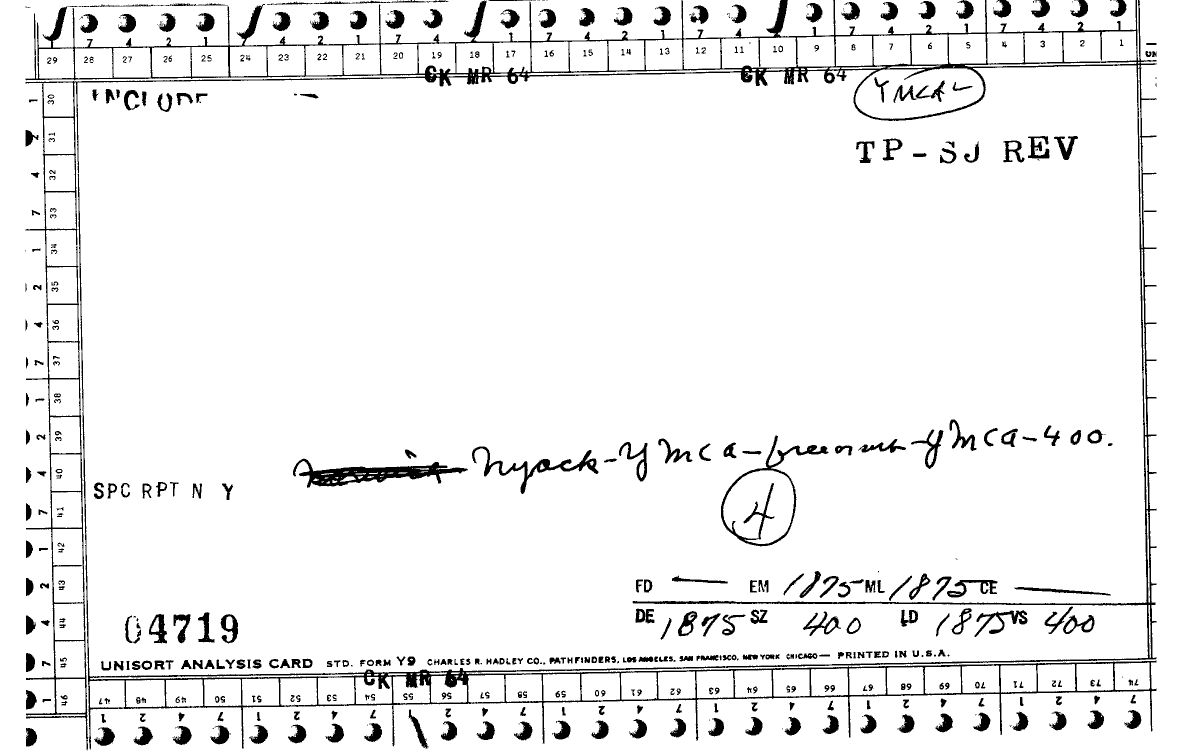 7 4 2 1 7 4 2 1 7 4 2 1 7 4 2 1 7 4 2 1 7 4 2 1
29 28 27 26 25 24 23 22 21 20 19 18 17 16 15 14 13 12 11 10 9 8 7 6 5 4 3 2 1
CK MR 64 CK MR 64
INCLUDE
YMCAL
TP-SJ REV
1 30
2 31
4 32
7 33
1 34
2 35
4 36
7 37
1 38
2 39
4 40
7 41
1 42
2 43
4 44
7 45
1 46
Nyack-YMCA- -YMCA-400.
SPC RPT N Y
4
FD — EM 1875 ML 1875 CE —
DE 1875 SZ 400 LD 1875 VS 400
04719
UNISORT ANALYSIS CARD STD. FORM Y9 CHARLES R. HADLEY CO., PATHFINDERS, LOS ANGELES, SAN FRANCISCO, NEW YORK CHICAGO — PRINTED IN U.S.A.
CK MR 64
47 48 49 50 51 52 53 54 55 56 57 58 59 60 61 62 63 64 65 66 67 68 69 70 71 72 73 74
1 2 4 7 1 2 4 7 1 2 4 7 1 2 4 7 1 2 4 7 1 2 4 7 1 2 4 7